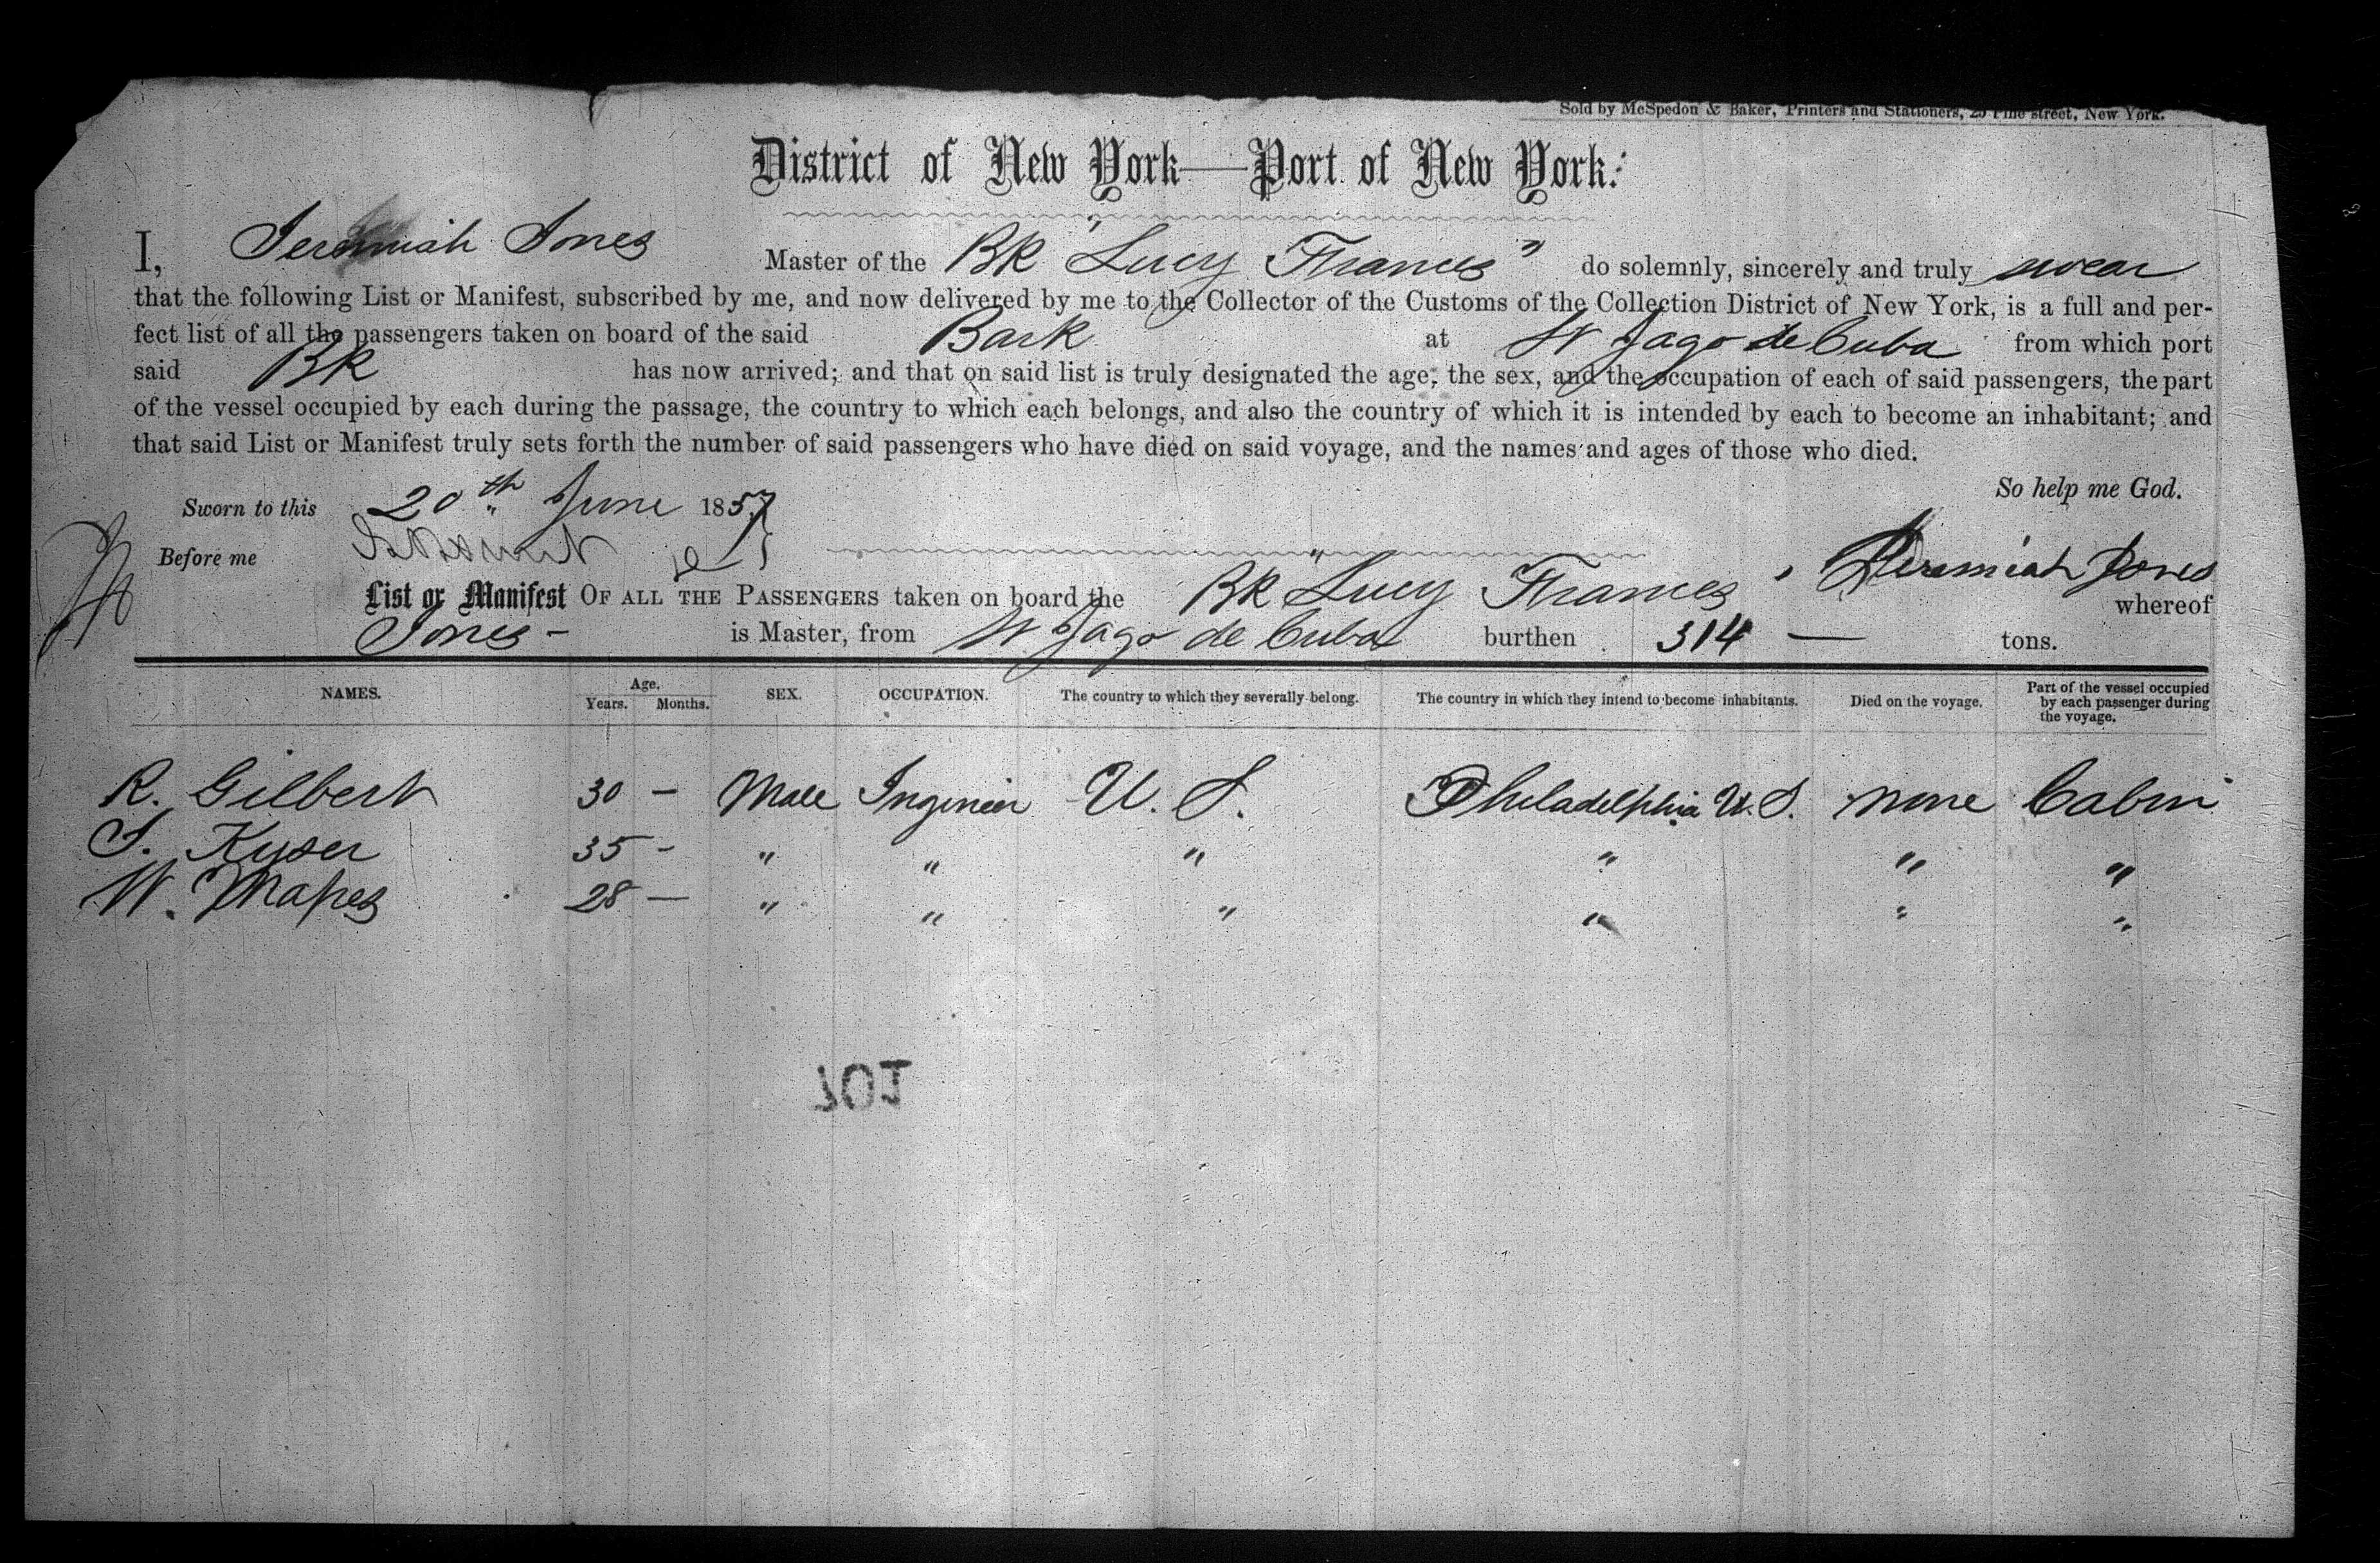 Sold by McSpedon & Baker, Printers and Stationers, 25 Pine street, New York.
District of New York—Port of New York:
I, Jeremiah Jones Master of the BK "Lucy Frances" do solemnly, sincerely and truly swear
that the following List or Manifest, subscribed by me, and now delivered by me to the Collector of the Customs of the Collection District of New York, is a full and per-
fect list of all the passengers taken on board of the said Bark at St Jago de Cuba from which port
said BK has now arrived; and that on said list is truly designated the age, the sex, and the occupation of each of said passengers, the part
of the vessel occupied by each during the passage, the country to which each belongs, and also the country of which it is intended by each to become an inhabitant; and
that said List or Manifest truly sets forth the number of said passengers who have died on said voyage, and the names and ages of those who died.
So help me God.
Sworn to this 20th June 1857
Before me
Jeremiah Jones
List or Manifest OF ALL THE PASSENGERS taken on board the BK "Lucy Frances" whereof
Jones - is Master, from St Jago de Cuba burthen 314 — tons.
NAMES. Age. Years. Months. SEX. OCCUPATION. The country to which they severally belong. The country in which they intend to become inhabitants. Died on the voyage. Part of the vessel occupied by each passenger during the voyage.
R. Gilbert 30 — Male Inginier U. S. Philadelphia U. S. none Cabin
S. Kyser 35 - " " " " " "
W. Mapes 28 — " " " " " "
701